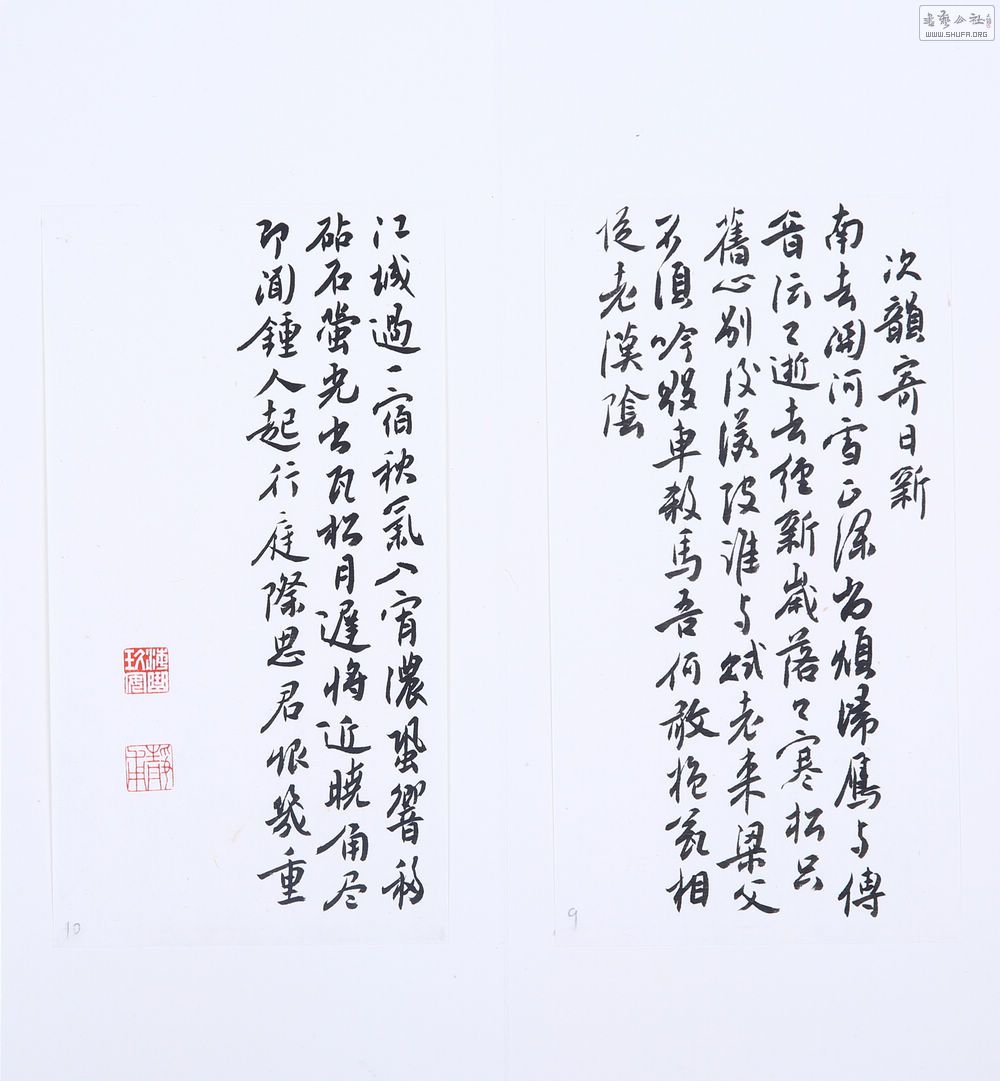 書藝公社
WWW.SHUFA.ORG
次韻寄日新
南去關河雪正深尚煩歸鴈与傳
音沄〻逝去經新歲落〻寒松只
舊心別後渼陂誰与賦老来梁父
不須吟毀車殺馬吾何敢抱甕相
從老漢陰
9
江城過一宿秋氣入宵濃蛩響移
砧石螢光出瓦松月遲將近曉角尽
即聞鍾人起行庭際思君恨幾重
10